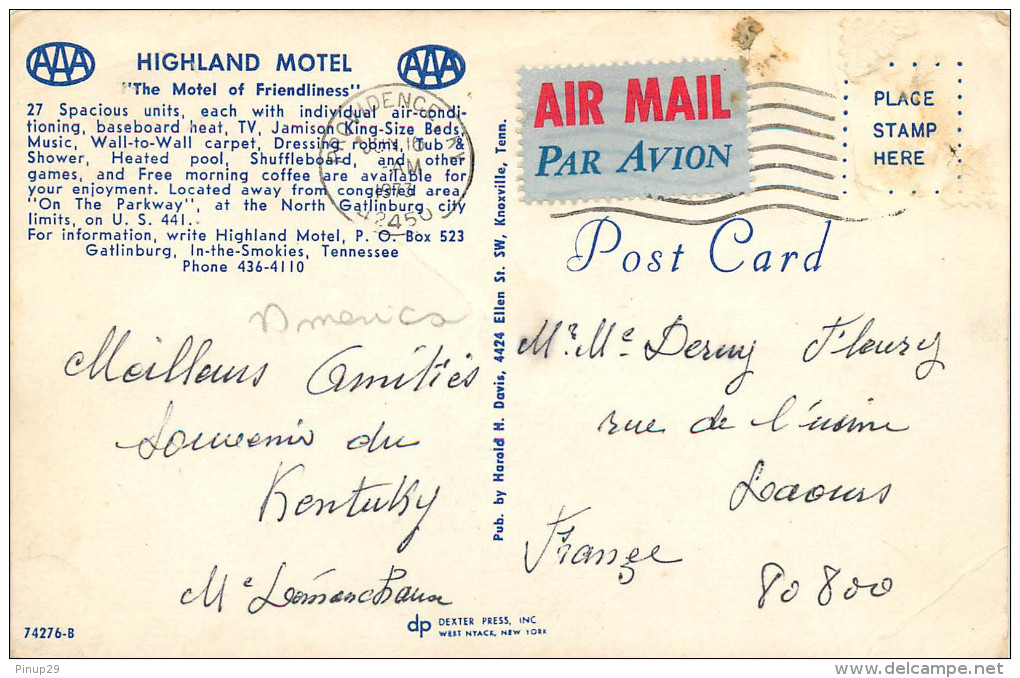 AAA
HIGHLAND MOTEL
AAA
"The Motel of Friendliness"
27 Spacious units, each with individual air-condi-
tioning, baseboard heat, TV, Jamison King-Size Beds,
Music, Wall-to-Wall carpet, Dressing rooms, Tub &
Shower, Heated pool, Shuffleboard, and other
games, and Free morning coffee are available for
your enjoyment. Located away from congested area,
"On The Parkway", at the North Gatlinburg city
limits, on U. S. 441.
For information, write Highland Motel, P. O. Box 523
Gatlinburg, In-the-Smokies, Tennessee
Phone 436-4110
PROVIDENCE, KY
JUN 16
1977
42450
America
Meilleurs Amitiés
Souvenir du
Kentuky
Me
74276-B
Pub. by Harold H. Davis, 4424 Ellen St. SW, Knoxville, Tenn.
dp DEXTER PRESS, INC
WEST NYACK, NEW YORK
AIR MAIL
PAR AVION
PLACE
STAMP
HERE
Post Card
Mr. Me Fleury
rue de l'usine
France
80 800
Pinup29
delcampe.net